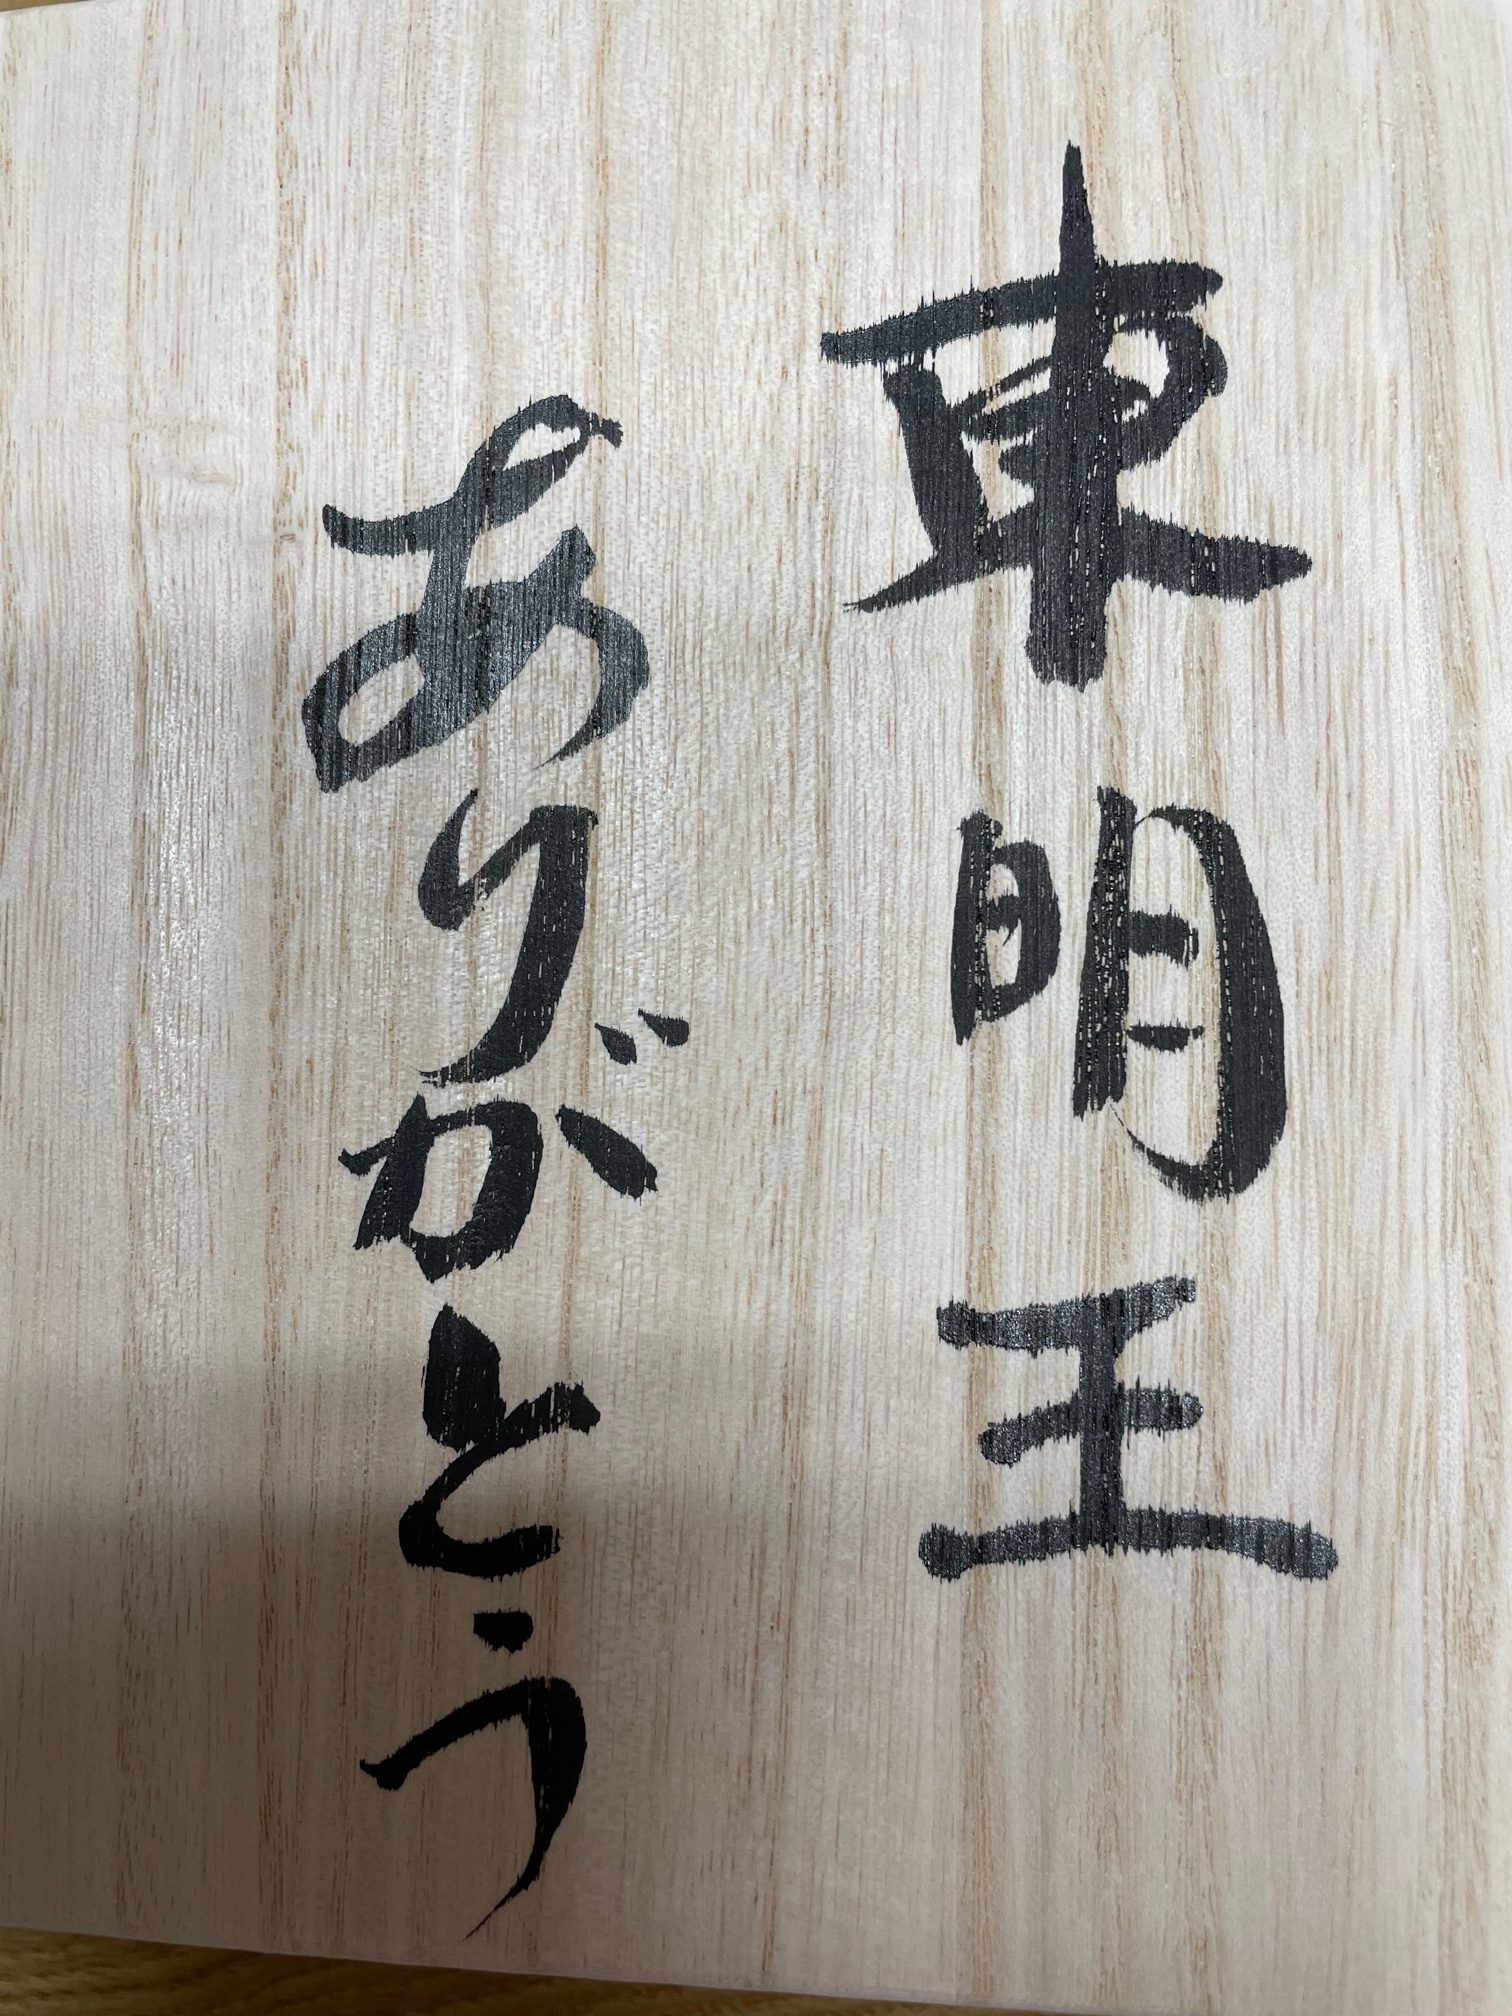 東明王
ありがとう